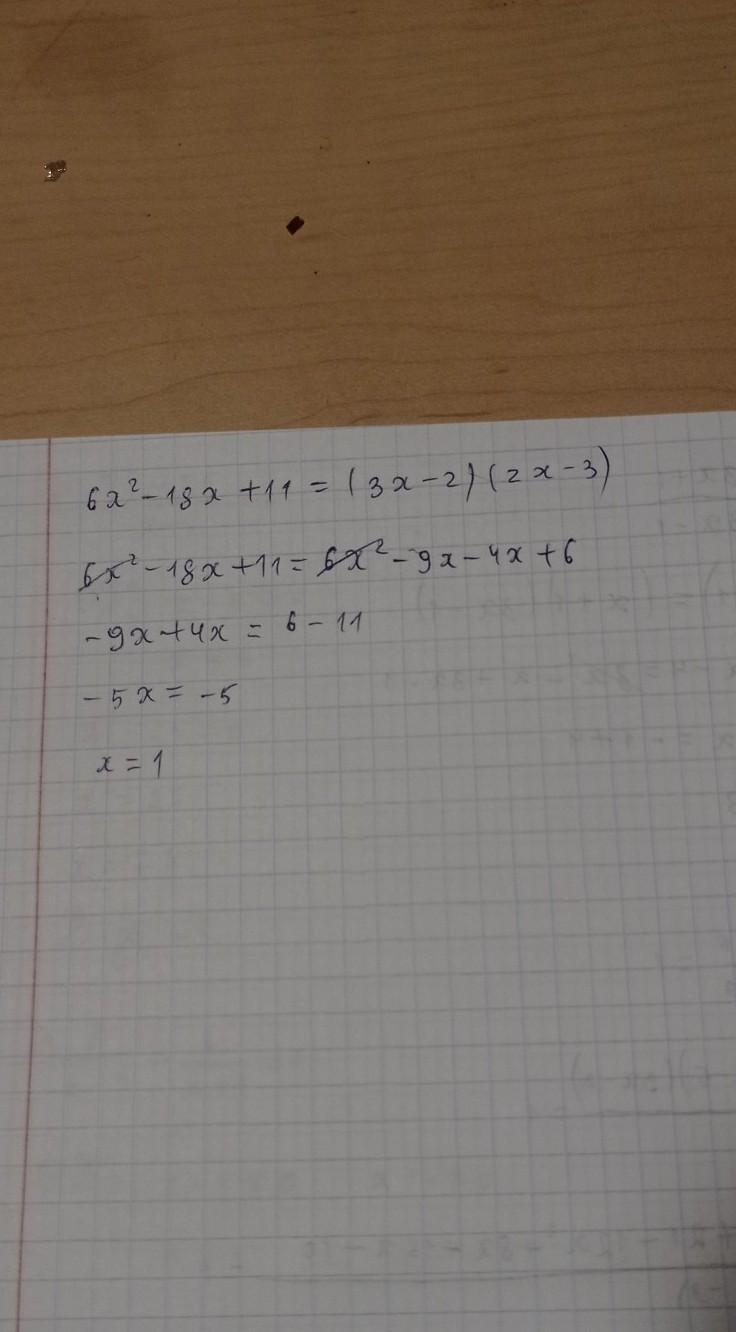 6x² - 18x + 11 = (3x - 2)(2x - 3)
6x² - 18x + 11 = 6x² - 9x - 4x + 6
-9x + 4x = 6 - 11
-5x = -5
x = 1